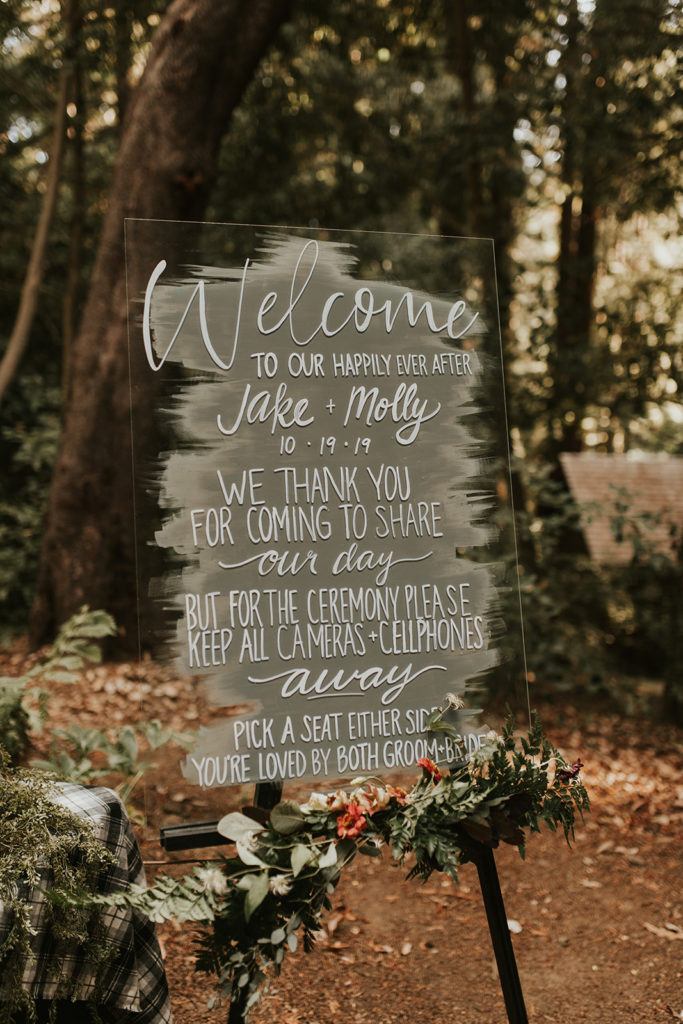 Welcome
TO OUR HAPPILY EVER AFTER
Jake + Molly
10 · 19 · 19
WE THANK YOU
FOR COMING TO SHARE
our day
BUT FOR THE CEREMONY PLEASE
KEEP ALL CAMERAS + CELLPHONES
away
PICK A SEAT EITHER SIDE
YOU'RE LOVED BY BOTH GROOM + BRIDE